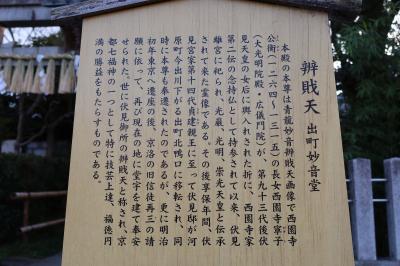 辨財天 出町妙音堂
本殿の本尊は青龍妙音辨財天画像で西園寺
公衡(一二六四〜一三一五)の長女西園寺寧子
(大光明院殿・広儀門院)が、第九十三代後伏
見天皇の女后に輿入れされた折に、西園寺家
第二伝の念持仏として持参されて以来、伏見
離宮に祀られ、光厳、光明、崇光天皇と伝承
されて来た霊像である。その後享保年間、伏
見宮家第十四代貞建親王に至って伏見邸が河
原町今出川下がる出町北鴨口に移転され、同
時に本尊も奉遷されたのであるが、更に明治
初年東京へ遷座の後、京洛の旧信徒再三の請
願に依って、再び現在の地に堂宇を建て奉安
せられた。世に伏見御所の辨財天と称され、京
都七福神の一つとして特に技芸上達、福徳円
満の勝益をもたらすものである。